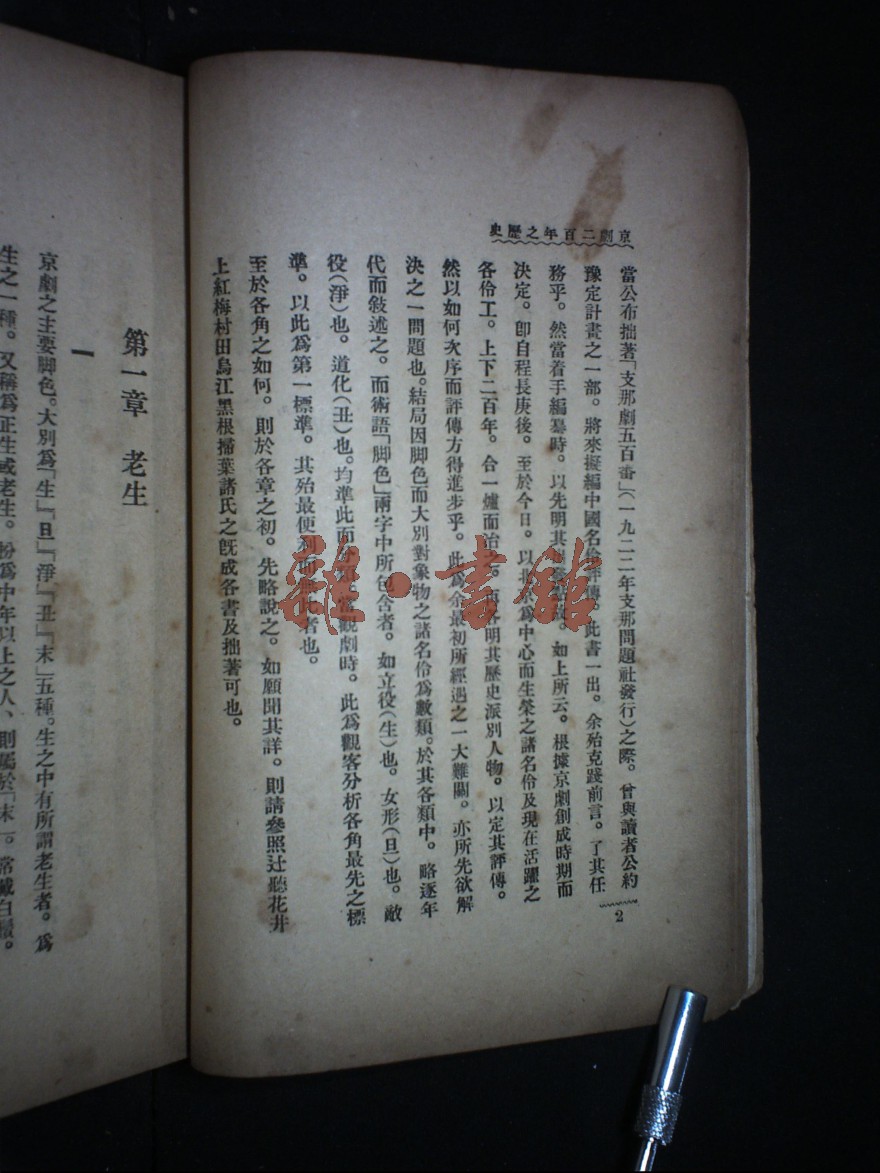 京劇二百年之歷史
2
當公布拙著「支那劇五百番」(一九二二年支那問題社發行)之際。曾與讀者公約
豫定計畫之一部。將來擬編中國名伶評傳。此書一出。余殆克踐前言。了其任
務乎。然當着手編纂時。以先明其故。如上所云。根據京劇創成時期而
決定。卽自程長庚後。至於今日。以北京爲中心而生榮之諸名伶及現在活躍之
各伶工。上下二百年。合一爐而冶之。各明其歷史派別人物。以定其評傳。
然以如何次序而評傳方得進步乎。此爲余最初所經過之一大難關。亦所先欲解
決之一問題也。結局因脚色而大別對象物之諸名伶爲數類。於其各類中。略逐年
代而敍述之。而術語「脚色」兩字中所包含者。如立役(生)也。女形(旦)也。敵
役(淨)也。道化(丑)也。均準此而分類。當觀劇時。此爲觀客分析各角最先之標
準。以此爲第一標準。其殆最便利而此者也。
至於各角之如何。則於各章之初。先略說之。如願聞其詳。則請參照辻聽花井
上紅梅村田烏江黑根掃葉諸氏之旣成各書及拙著可也。
第一章 老生
一
京劇之主要脚色。大別爲「生」「旦」「淨」「丑」「末」五種。生之中有所謂老生者。爲
生之一種。又稱爲正生或老生。扮爲中年以上之人、則屬於「末」。常戴白鬚。
雜·書館